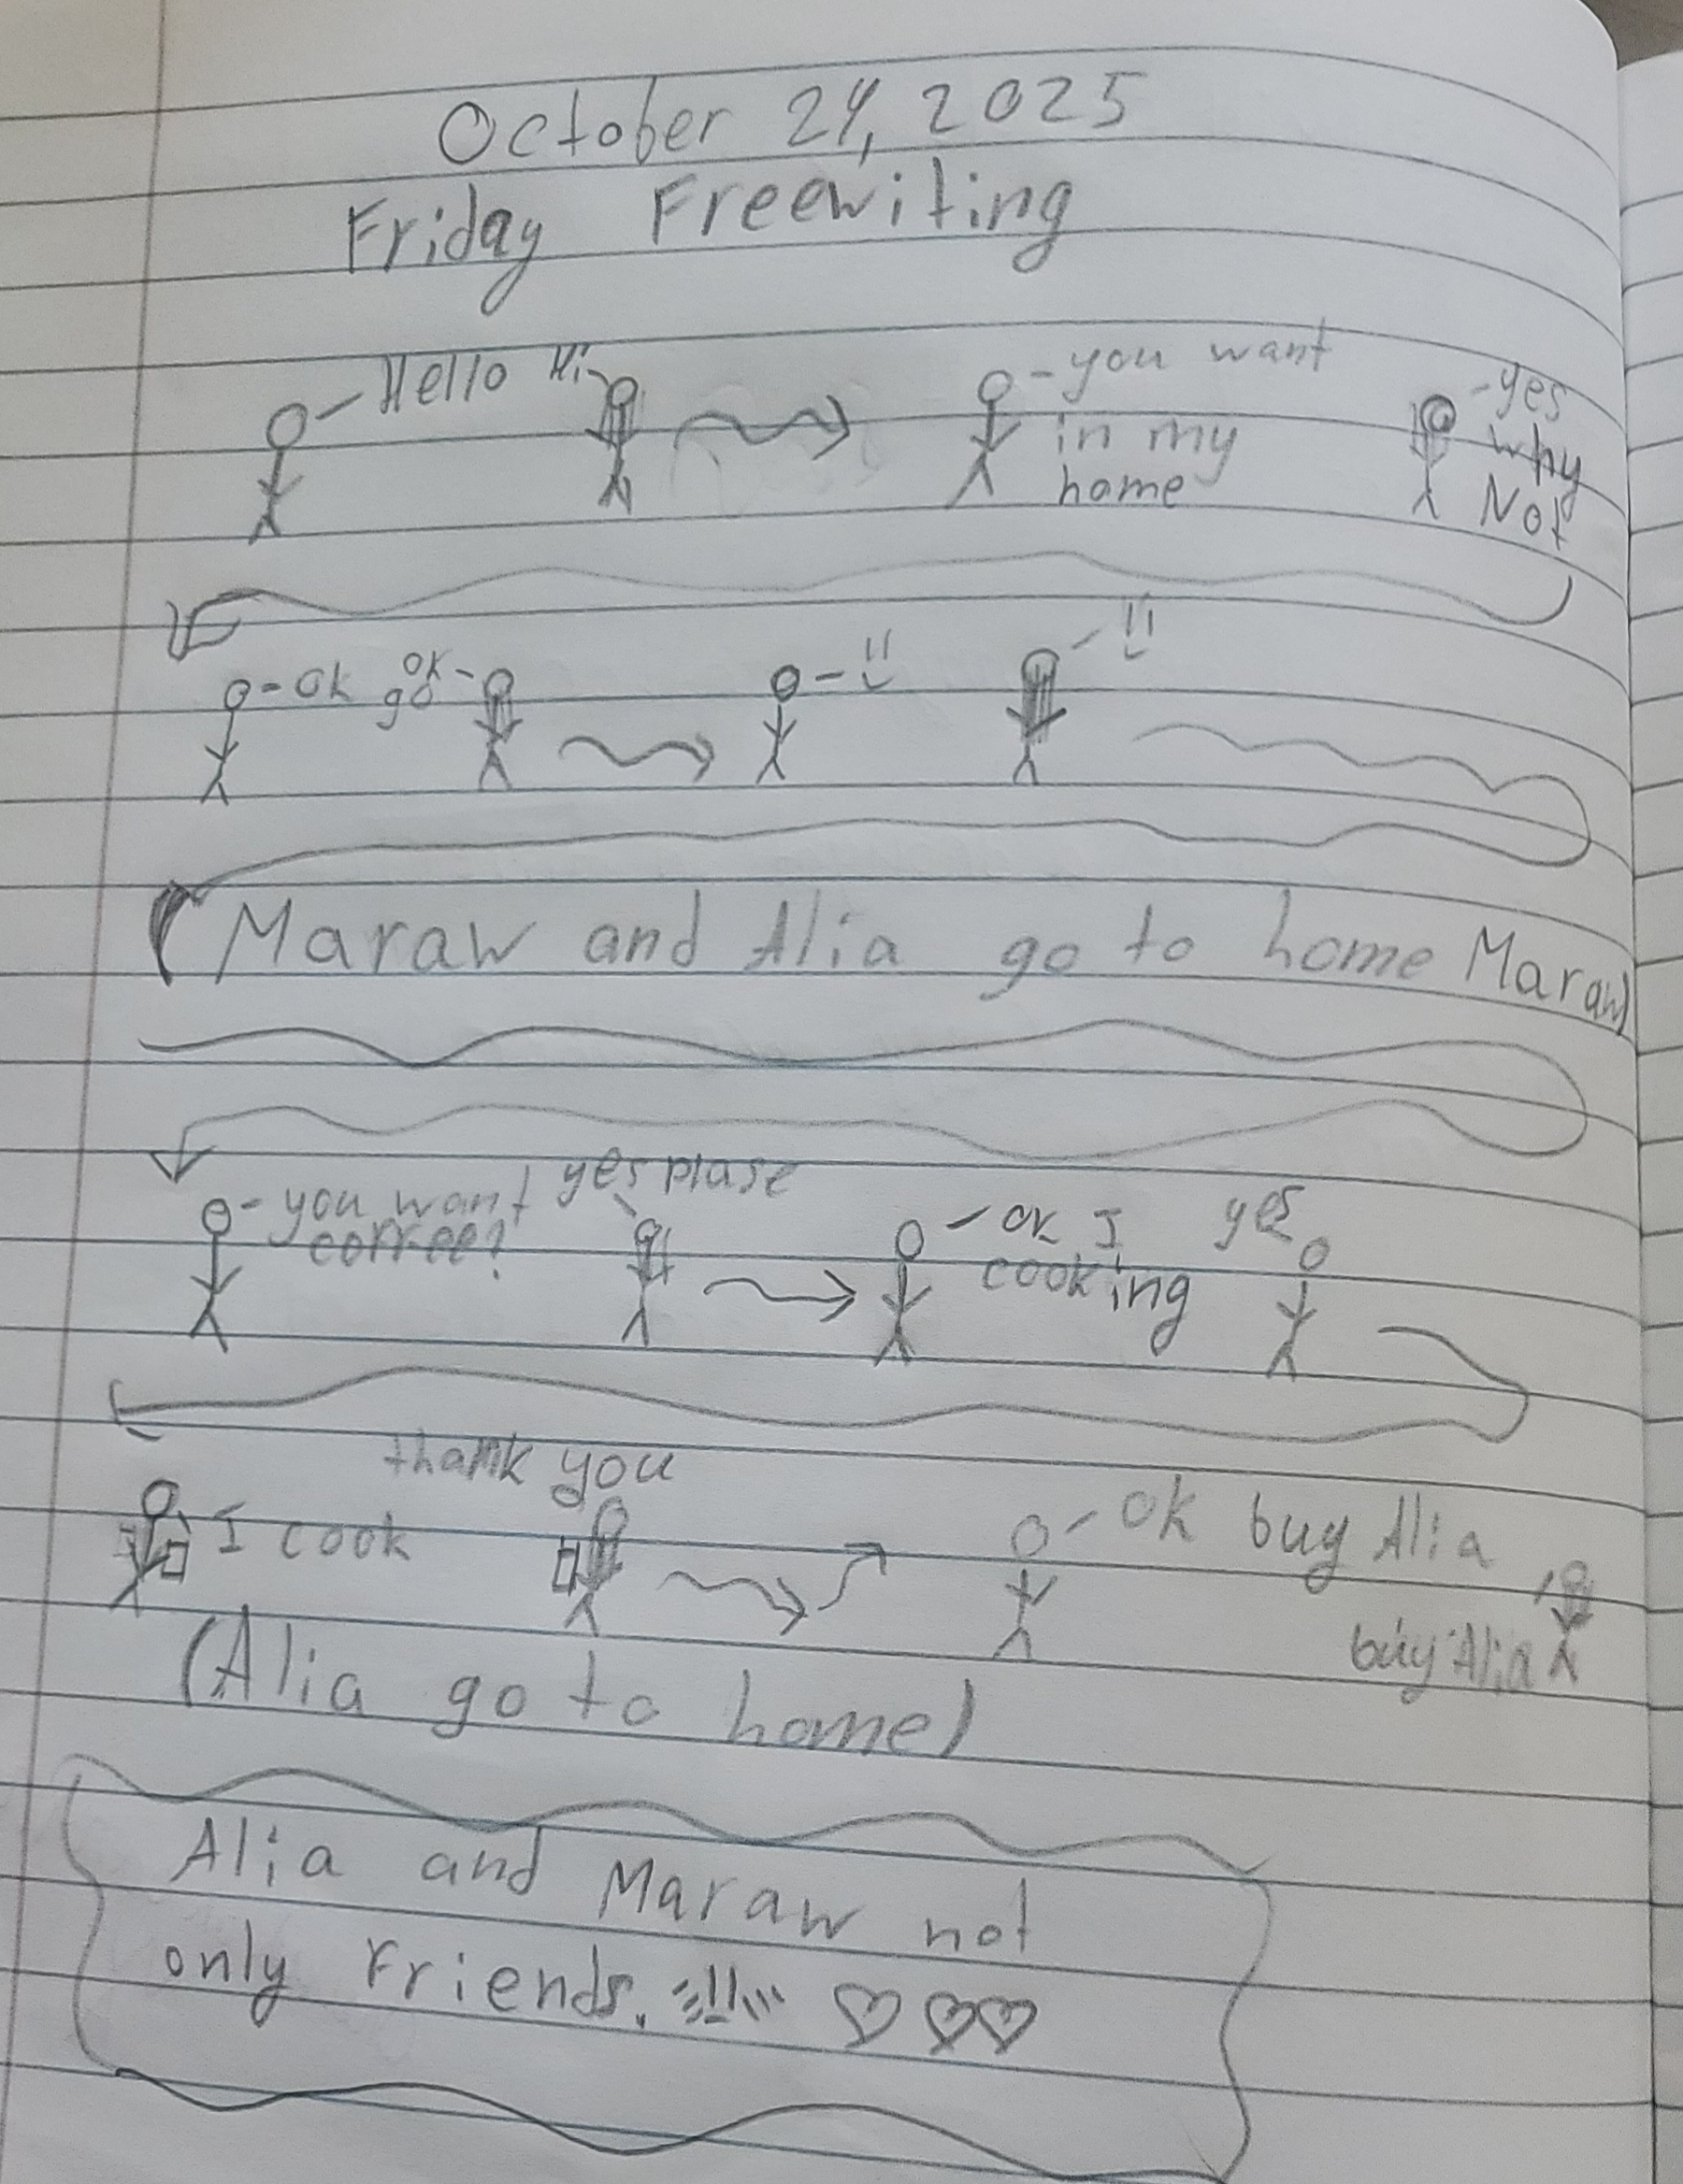 October 24, 2025
Friday Freewiting
Hello Hi
you want
in my
home
yes
why
Not
ok ok
go
Maraw and Alia go to home Maraw)
you want yes plase
corree?
ok I yes
cooking
thank you
I cook
Ok buy Alia
buy Alia
(Alia go to home)
Alia and Maraw not
only Friends.